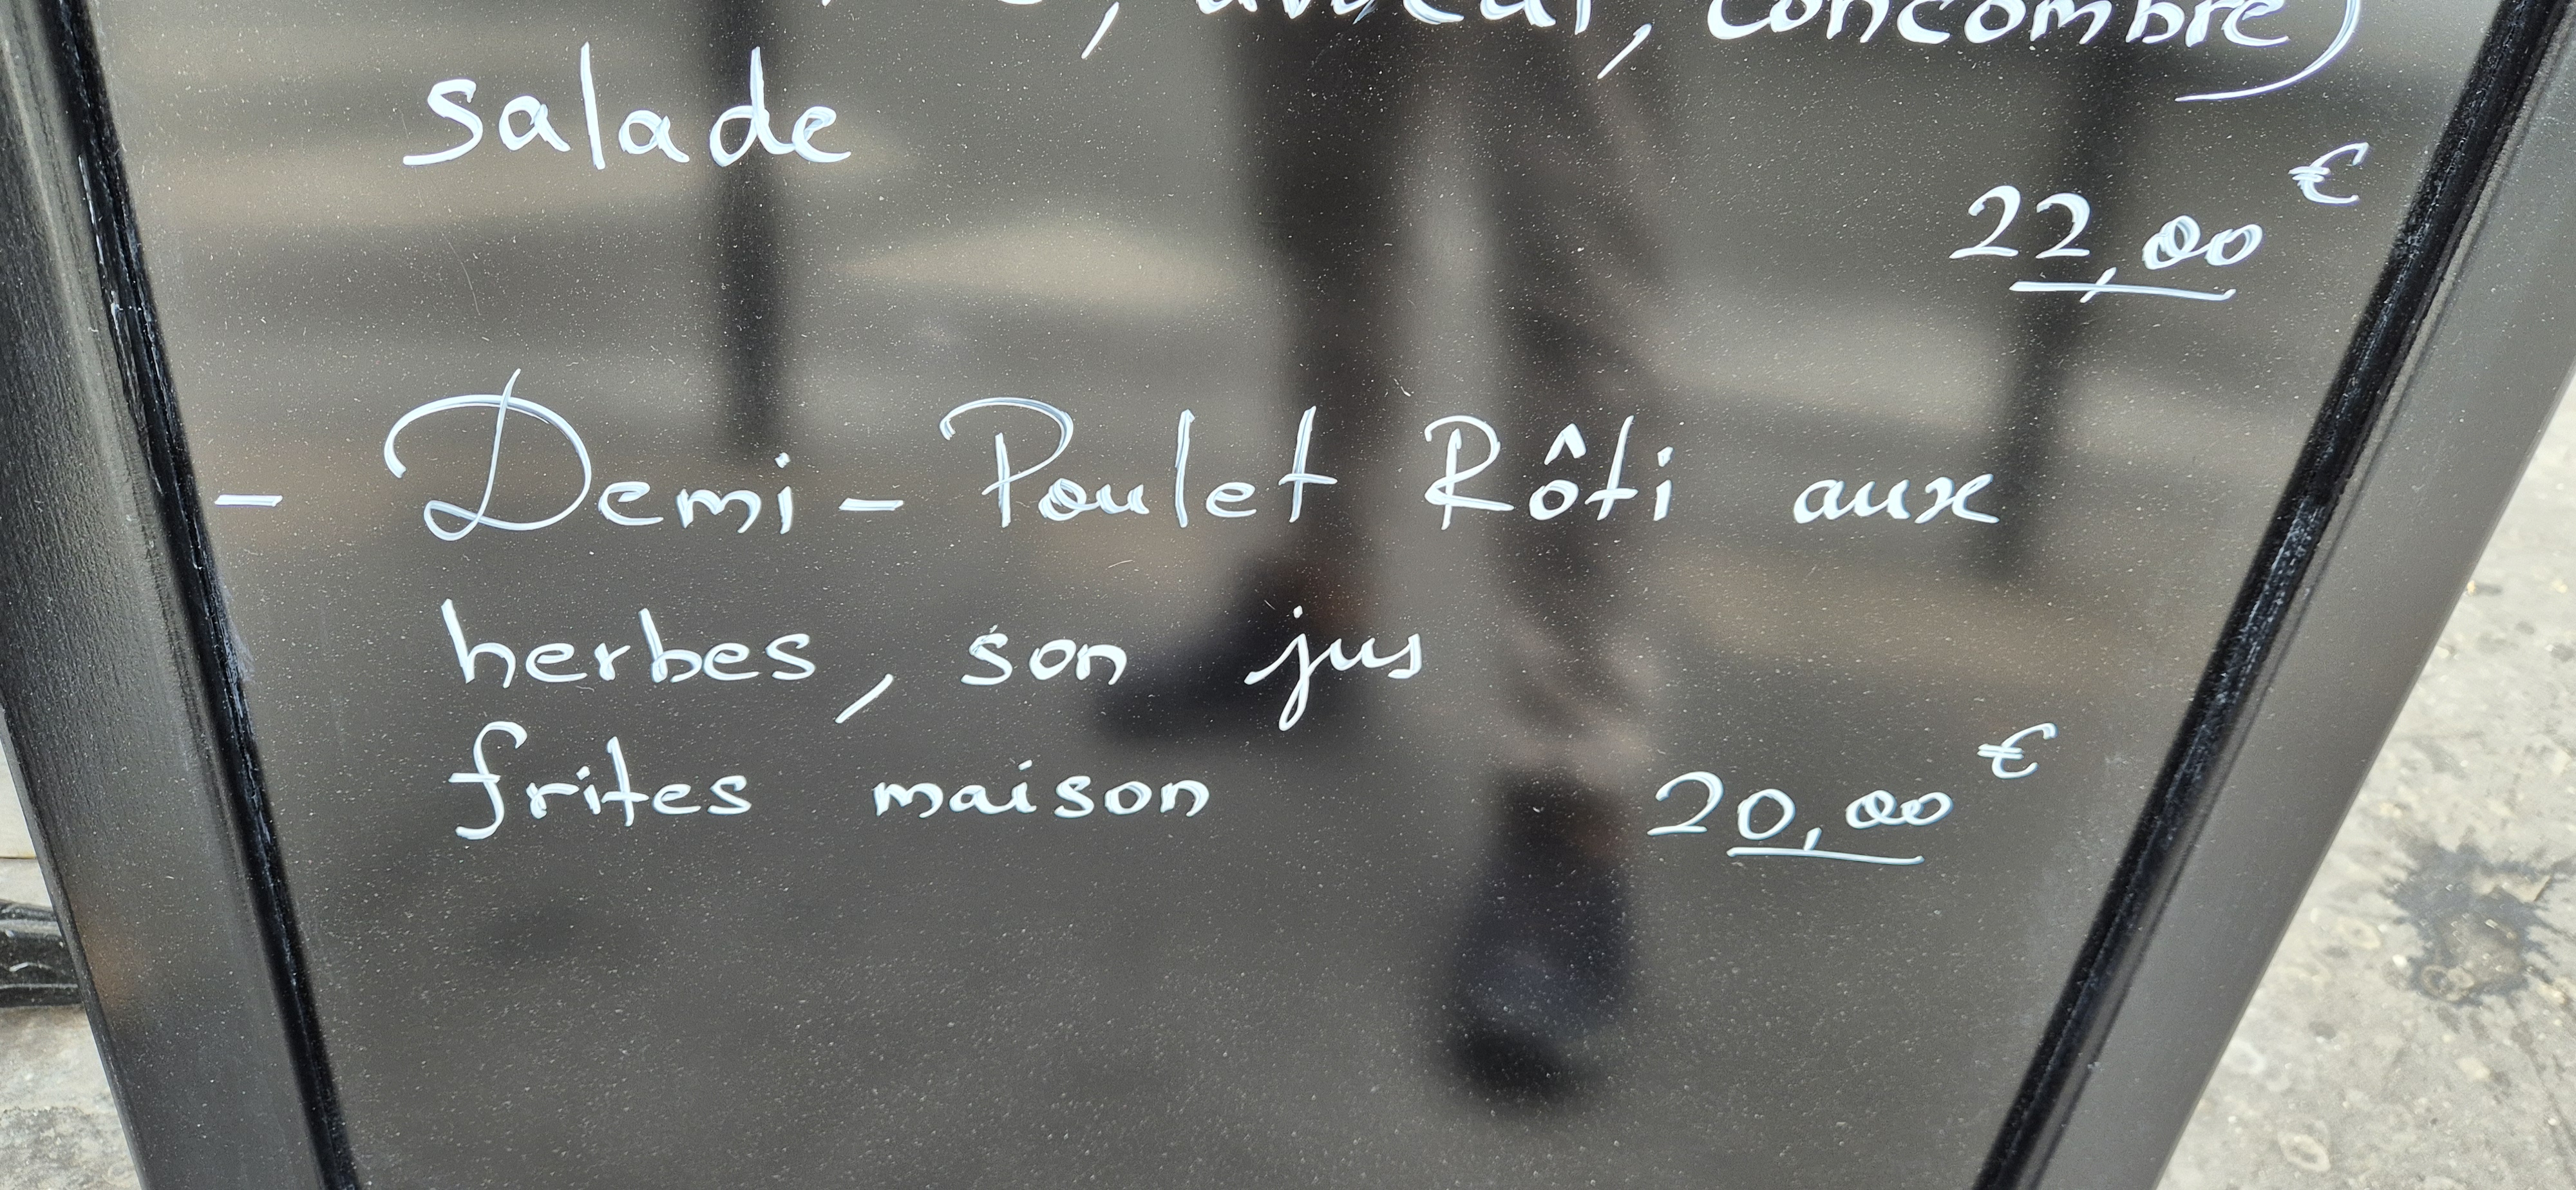 , avocat, concombre)
salade
22,00 €
- Demi - Poulet Rôti aux
herbes, son jus
frites maison 20,00 €